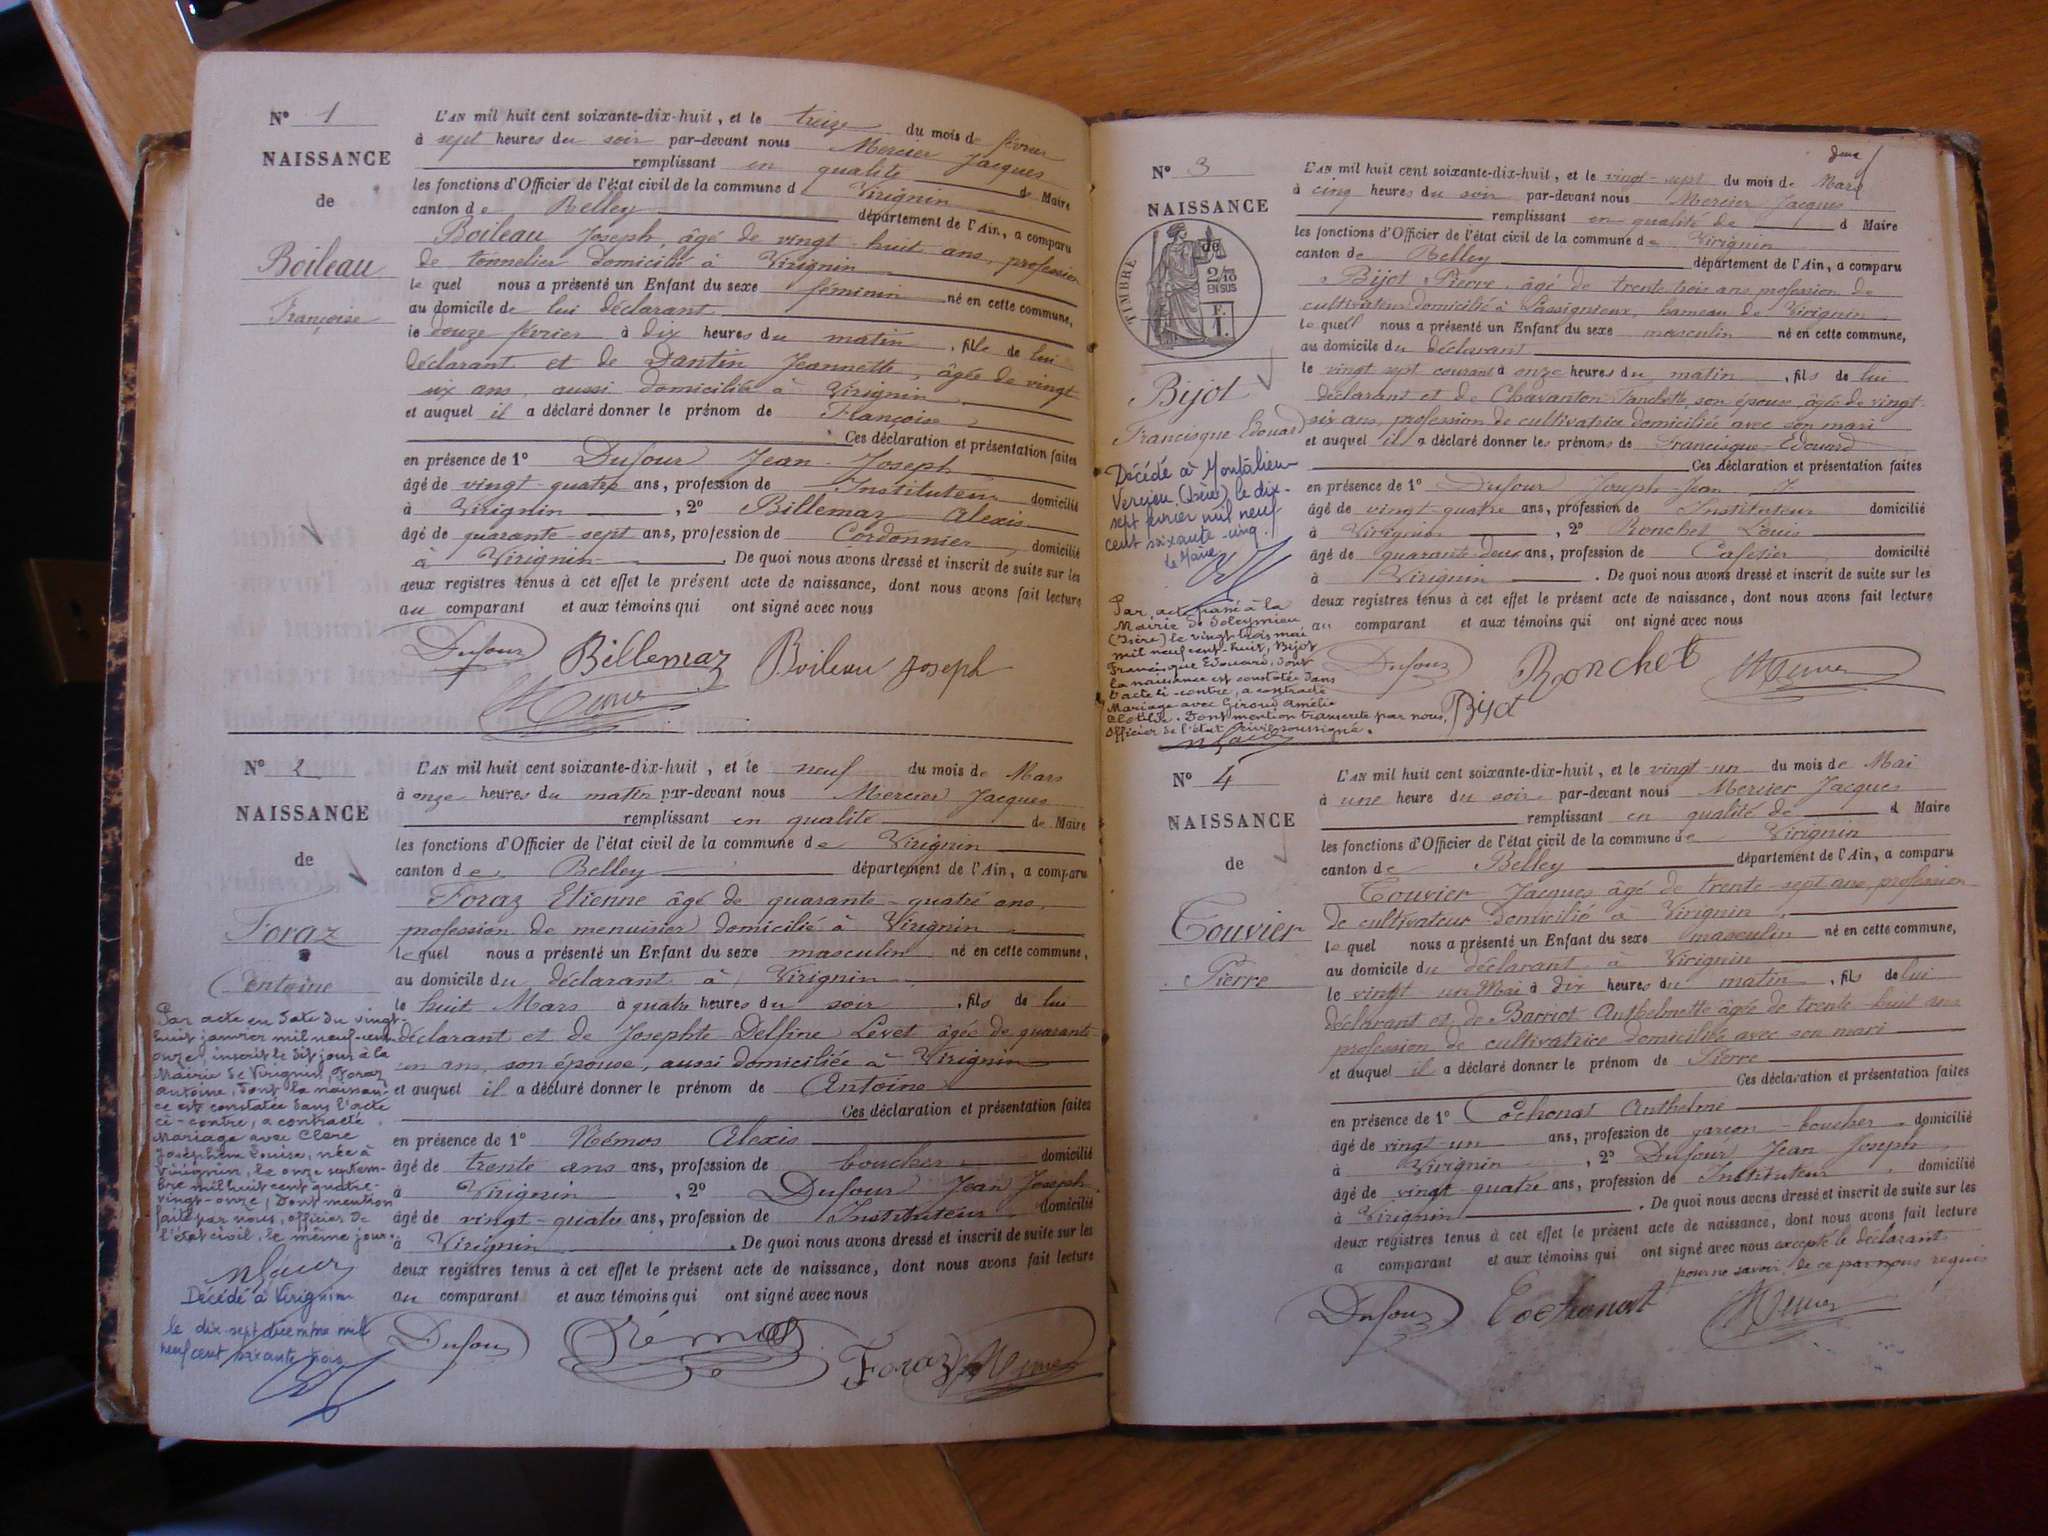 N° 1
NAISSANCE
de
Boileau
Françoise
L'AN mil huit cent soixante-dix-huit, et le treize du mois de février
à sept heures du soir par-devant nous Mercier Jacques
remplissant en qualité de Maire
les fonctions d'Officier de l'état civil de la commune d Virignin
canton de Belley département de l'Ain, a comparu
Boileau Joseph, âgé de vingt-huit ans, profession
de tonnelier domicilié à Virignin
le quel nous a présenté un Enfant du sexe féminin né en cette commune,
au domicile de lui déclarant
le douze février à dix heures du matin, fille de lui
déclarant et de Dantin Jeannette, âgée de vingt
six ans, aussi domiciliée à Virignin
et auquel il a déclaré donner le prénom de Françoise
Ces déclaration et présentation faites
en présence de 1° Dufour Jean-Joseph
âgé de vingt-quatre ans, profession de Instituteur domicilié
à Virignin, 2° Billemaz Alexis
âgé de quarante-sept ans, profession de Cordonnier, domicilié
à Virignin. De quoi nous avons dressé et inscrit de suite sur les
deux registres tenus à cet effet le présent acte de naissance, dont nous avons fait lecture
au comparant et aux témoins qui ont signé avec nous
Dufour Billemaz Boileau Joseph
Mercier
N° 2
NAISSANCE
de
Foraz
Antoine
Par acte en date du vingt-
huit janvier mil neuf-cent
onze, inscrit le dit jour à la
Mairie de Virignin, Foraz
Antoine, dont la naissan-
ce est constatée dans l'acte
ci-contre, a contracté
Mariage avec Clerc
Joséphine Louise, née à
Virignin, le onze septem-
bre mil huit cent quatre-
vingt-onze, Dont mention
faite par nous, officier de
l'état civil, le même jour.
Décédé à Virignin
le dix-sept décembre mil
neuf cent soixante trois
L'AN mil huit cent soixante-dix-huit, et le neuf du mois de Mars
à onze heures du matin par-devant nous Mercier Jacques
remplissant en qualité de Maire
les fonctions d'Officier de l'état civil de la commune de Virignin
canton de Belley département de l'Ain, a comparu
Foraz Etienne âgé de quarante-quatre ans,
profession de menuisier domicilié à Virignin
le quel nous a présenté un Enfant du sexe masculin né en cette commune,
au domicile du déclarant à Virignin
le huit Mars à quatre heures du soir, fils de lui
déclarant et de Josephte Delfine Levet âgée de quarante-
un ans, son épouse, aussi domiciliée à Virignin
et auquel il a déclaré donner le prénom de Antoine
Ces déclaration et présentation faites
en présence de 1° Rémos Alexis
âgé de trente ans ans, profession de boucher domicilié
à Virignin, 2° Dufour Jean Joseph
âgé de vingt-quatre ans, profession de Instituteur domicilié
à Virignin. De quoi nous avons dressé et inscrit de suite sur les
deux registres tenus à cet effet le présent acte de naissance, dont nous avons fait lecture
au comparant et aux témoins qui ont signé avec nous
Dufour Rémos Foraz Mercier
N° 3
NAISSANCE
de
TIMBRE
2/10
EN SUS
F.
1.
Bijot
Francisque Edouard
Décédé à Montalieu
Vercieu (Isère) le dix-
sept février mil neuf
cent soixante-cinq.
Le Maire
Par acte passé à la
Mairie de Soleymieu
(Isère) le vingt trois mai
mil neuf cent-huit, Bijot
Francisque Edouard, dont
la naissance est constatée dans
l'acte ci-contre, a contracté
Mariage avec Giroud Amélie
Clotilde. Dont mention transcrite par nous,
Officier de l'état civil soussigné.
L'AN mil huit cent soixante-dix-huit, et le vingt-sept du mois de Mars
à cinq heures du soir par-devant nous Mercier Jacques
remplissant en qualité de d Maire
les fonctions d'Officier de l'état civil de la commune de Virignin
canton de Belley département de l'Ain, a comparu
Bijot Pierre, âgé de trente trois ans profession de
cultivateur domicilié à Lassignieux, hameau de Virignin
le quel nous a présenté un Enfant du sexe masculin né en cette commune,
au domicile du déclarant
le vingt sept courant à onze heures du matin, fils de lui
déclarant et de Chavanton Fanchette, son épouse, âgée de vingt-
six ans, profession de cultivatrice domiciliée avec son mari
et auquel il a déclaré donner les prénoms de Francisque-Edouard
Ces déclaration et présentation faites
en présence de 1° Dufour Joseph-Jean
âgé de vingt-quatre ans, profession de Instituteur domicilié
à Virignin, 2° Ronchet Louis
âgé de quarante-deux ans, profession de Cafetier domicilié
à Virignin. De quoi nous avons dressé et inscrit de suite sur les
deux registres tenus à cet effet le présent acte de naissance, dont nous avons fait lecture
au comparant et aux témoins qui ont signé avec nous
Dufour Ronchet Mercier
Bijot
N° 4
NAISSANCE
de
Touvier
Pierre
L'AN mil huit cent soixante-dix-huit, et le vingt-un du mois de Mai
à une heure du soir par-devant nous Mercier Jacques
remplissant en qualité de d Maire
les fonctions d'Officier de l'état civil de la commune de Virignin
canton de Belley département de l'Ain, a comparu
Touvier Jacques âgé de trente-sept ans, profession
de cultivateur domicilié à Virignin
le quel nous a présenté un Enfant du sexe masculin né en cette commune,
au domicile du déclarant à Virignin
le vingt un Mai à dix heures du matin, fils de lui
déclarant et de Barriot Anthelmette âgée de trente-huit ans
profession de cultivatrice domiciliée avec son mari
et auquel il a déclaré donner le prénom de Pierre
Ces déclaration et présentation faites
en présence de 1° Cochonat Anthelme
âgé de vingt un ans, profession de garçon-boucher domicilié
à Virignin, 2° Dufour Jean Joseph
âgé de vingt-quatre ans, profession de Instituteur, domicilié
à Virignin. De quoi nous avons dressé et inscrit de suite sur les
deux registres tenus à cet effet le présent acte de naissance, dont nous avons fait lecture
a comparant et aux témoins qui ont signé avec nous excepté le déclarant
pour ne savoir, de ce par nous requis
Dufour Cochonat Mercier